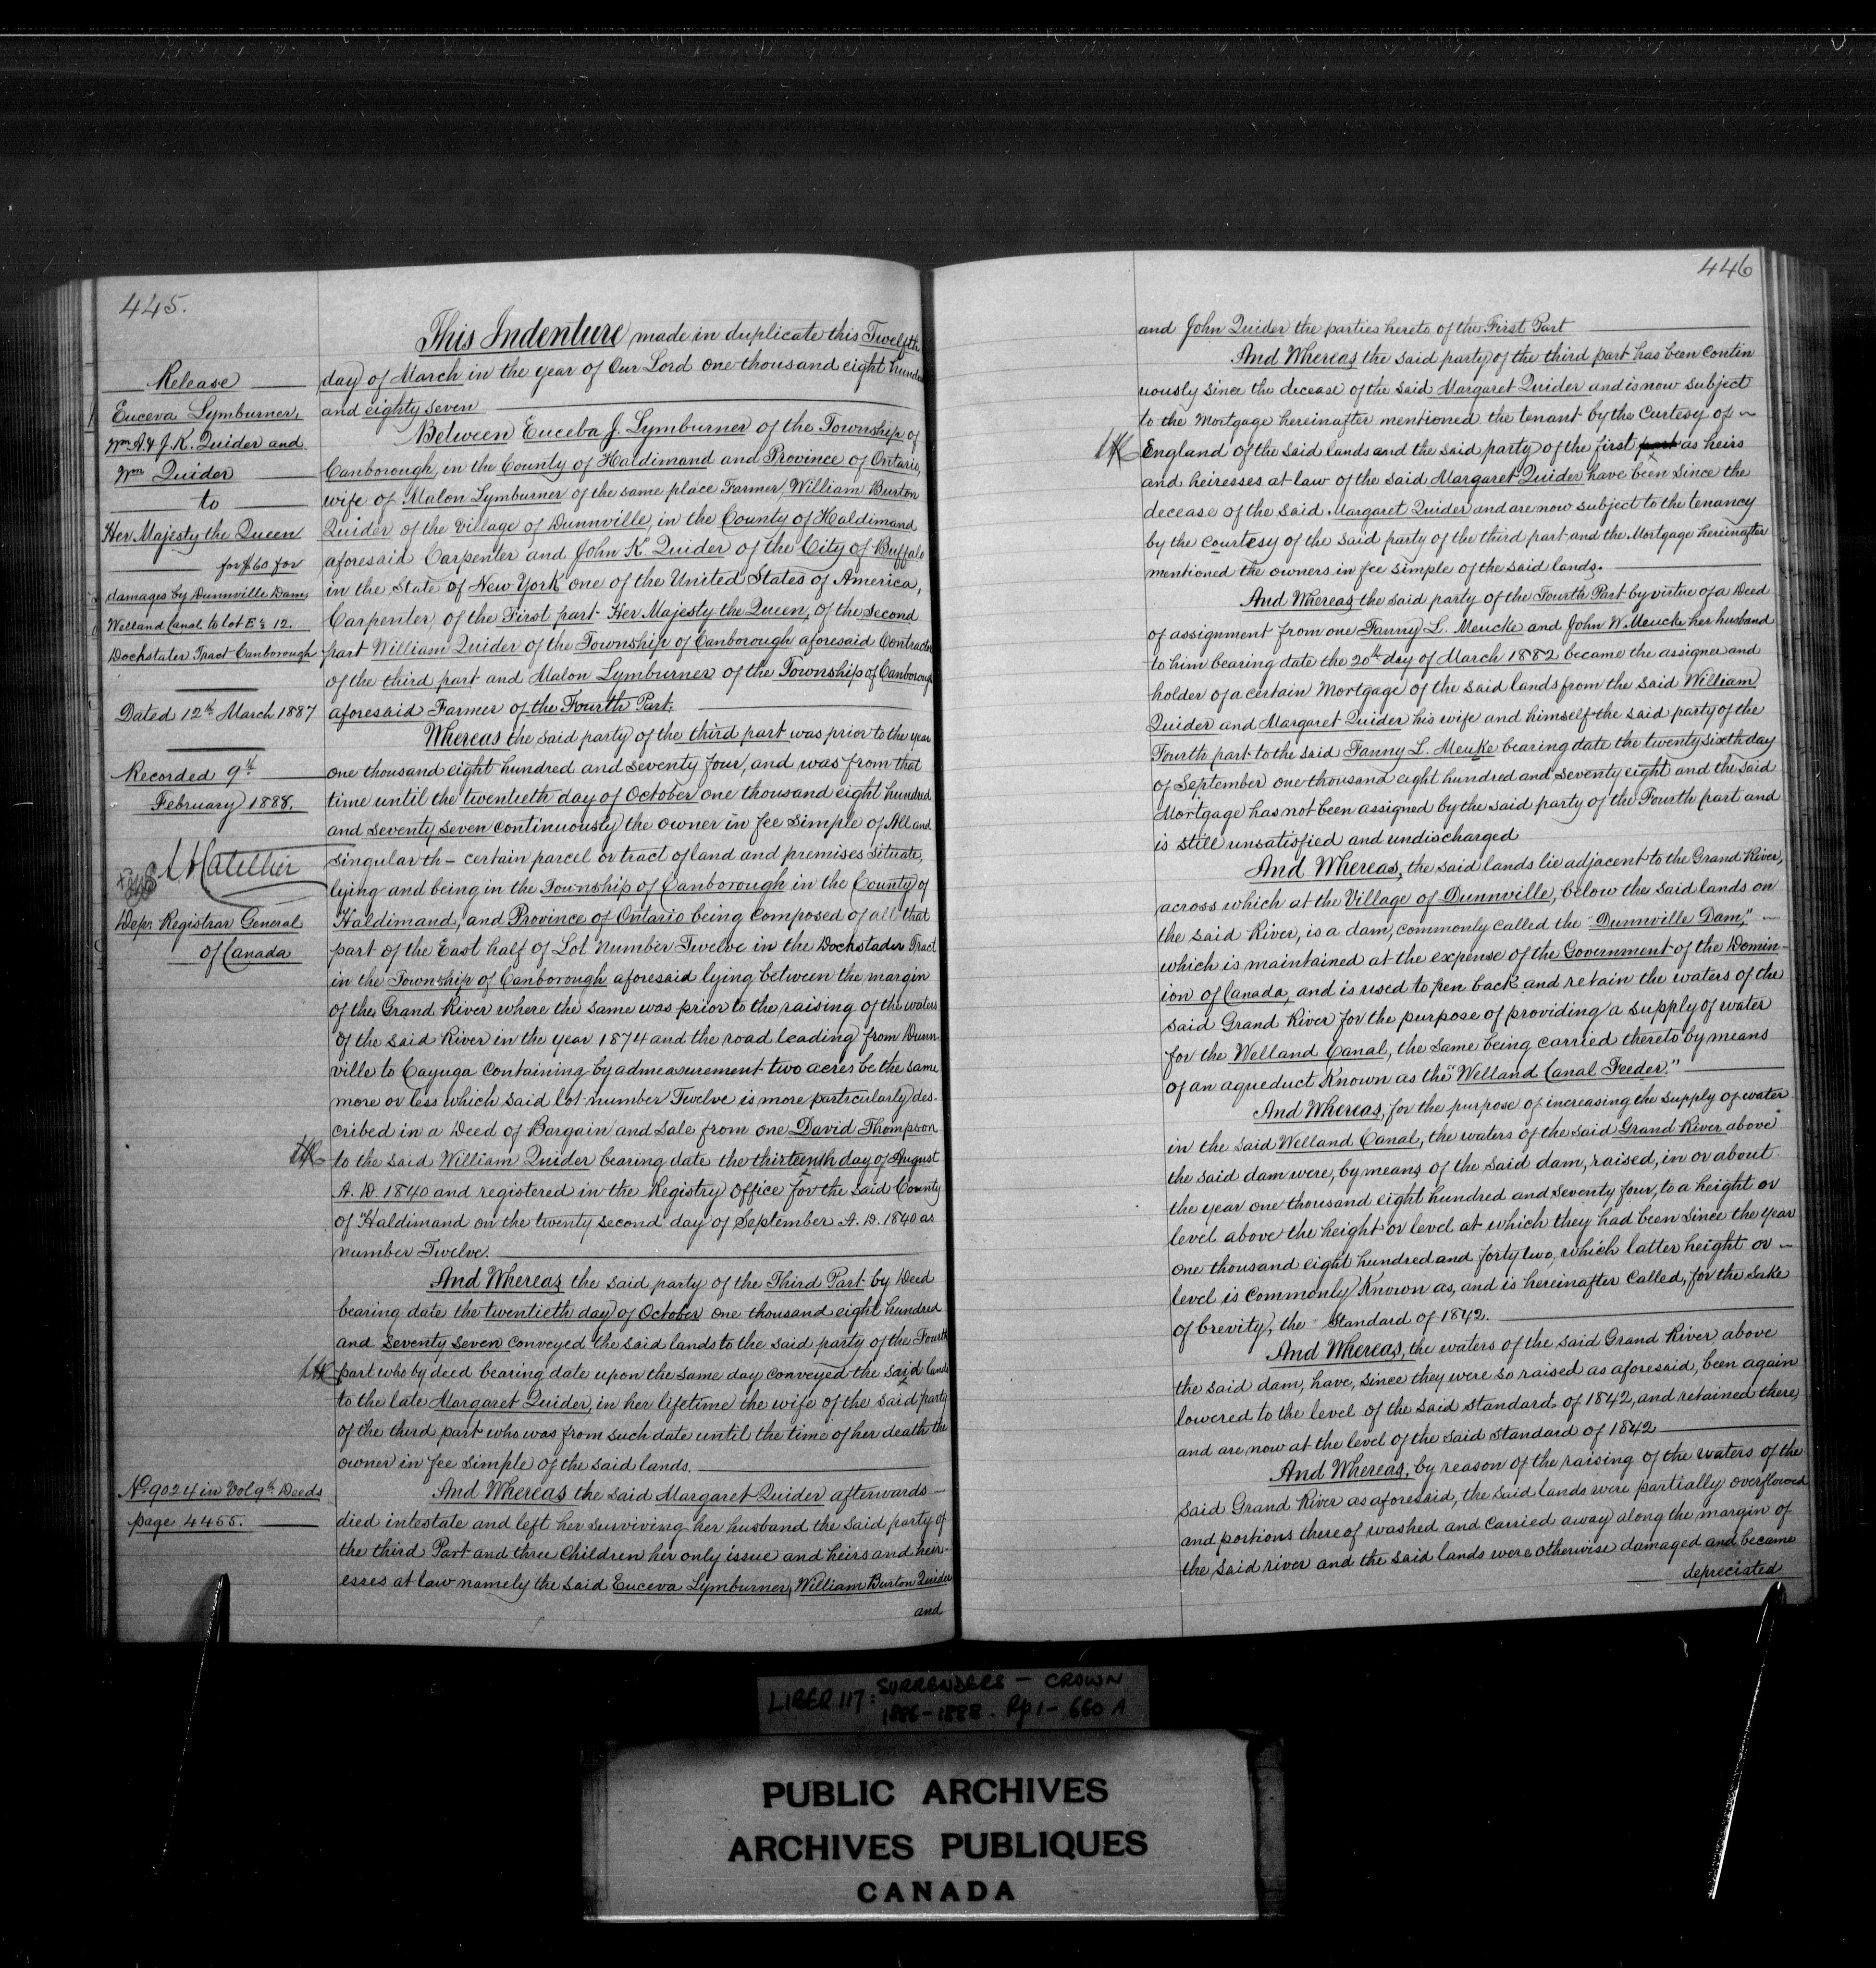 445.
Release
Euceva Lymburner,
Wm A & J. K. Quider and
Wm Quider
to
Her Majesty the Queen
for $60 for
damages by Dunnville Dam,
Welland Canal to lot E ½ 12.
Dochstater Tract Canborough
Dated 12th March 1887
Recorded 9th
February 1888.
Dep. Registrar General
of Canada
No 9024 in Vol 9th Deeds
page 4455.
This Indenture made in duplicate this Twelfth
day of March in the year of Our Lord one thousand eight hundred
and eighty seven
Between Euceba J. Lymburner of the Township of
Canborough, in the County of Haldimand and Province of Ontario,
wife of Malon Lymburner of the same place Farmer, William Burton
Quider of the Village of Dunnville, in the County of Haldimand
aforesaid Carpenter and John K. Quider of the City of Buffalo
in the State of New York one of the United States of America,
Carpenter, of the First part Her Majesty the Queen, of the Second
part William Quider of the Township of Canborough aforesaid Contractor
of the third part and Malon Lymburner of the Township of Canborough
aforesaid Farmer of the Fourth Part.
Whereas the said party of the third part was prior to the year
one thousand eight hundred and seventy four, and was from that
time until the twentieth day of October one thousand eight hundred
and seventy seven continuously the owner in fee simple of All and
singular th- certain parcel or tract of land and premises situate,
lying and being in the Township of Canborough in the County of
Haldimand, and Province of Ontario being composed of all that
part of the East half of Lot Number Twelve in the Dochstader Tract
in the Township of Canborough aforesaid lying between the margin
of the Grand River where the same was prior to the raising of the waters
of the said River in the year 1874 and the road leading from Dunn-
ville to Cayuga containing by admeasurement two acres be the same
more or less which said lot number Twelve is more particularly des-
cribed in a Deed of Bargain and Sale from one David Thompson
to the said William Quider bearing date the thirteenth day of August
A. D. 1840 and registered in the Registry Office for the said County
of Haldimand on the twenty second day of September A. D. 1840 as
number Twelve.
And Whereas the said party of the Third Part by Deed
bearing date the twentieth day of October one thousand eight hundred
and seventy seven conveyed the said lands to the said party of the Fourth
part who by deed bearing date upon the same day conveyed the said lands
to the late Margaret Quider, in her lifetime the wife of the said party
of the third part who was from such date until the time of her death the
owner in fee simple of the said lands.
And Whereas the said Margaret Quider afterwards
died intestate and left her surviving her husband the said party of
the third Part and three Children her only issue and heirs and heir-
esses at law namely the said Euceva Lymburner, William Burton Quider
and
446
and John Quider the parties hereto of the First Part
And Whereas the said party of the third part has been contin
uously since the decease of the said Margaret Quider and is now subject
to the Mortgage hereinafter mentioned the tenant by the Curtesy of
England of the said lands and the said party of the first part as heirs
and heiresses at law of the said Margaret Quider have been since the
decease of the said Margaret Quider and are now subject to the tenancy
by the Courtesy of the said party of the third part and the Mortgage hereinafter
mentioned the owners in fee simple of the said lands.
And Whereas the said party of the Fourth Part by virtue of a Deed
of assignment from one Fanny L. Meucke and John W. Meucke her husband
to him bearing date the 20th day of March 1882 became the assignee and
holder of a certain Mortgage of the said lands from the said William
Quider and Margaret Quider his wife and himself the said party of the
Fourth part to the said Fanny L. Meuke bearing date the twenty sixth day
of September one thousand eight hundred and seventy eight and the said
Mortgage has not been assigned by the said party of the Fourth part and
is still unsatisfied and undischarged
And Whereas, the said lands lie adjacent to the Grand River,
across which at the Village of Dunnville, below the said lands on
the said River, is a dam, commonly called the "Dunnville Dam,"
which is maintained at the expense of the Government of the Domin-
ion of Canada, and is used to pen back and retain the waters of the
said Grand River for the purpose of providing a supply of water
for the Welland Canal, the same being carried thereto by means
of an aqueduct known as the "Welland Canal Feeder."
And Whereas, for the purpose of increasing the supply of water
in the said Welland Canal, the waters of the said Grand River above
the said dam were, by means of the said dam, raised, in or about
the year one thousand eight hundred and seventy four, to a height or
level above the height or level at which they had been since the year
one thousand eight hundred and forty two, which latter height or
level is commonly known as, and is hereinafter called, for the sake
of brevity, the Standard of 1842.
And Whereas, the waters of the said Grand River above
the said dam, have, since they were so raised as aforesaid, been again
lowered to the level of the said standard of 1842, and retained there,
and are now at the level of the said standard of 1842
And Whereas, by reason of the raising of the waters of the
said Grand River as aforesaid, the said lands were partially overflowed
and portions thereof washed and carried away along the margin of
the said river and the said lands were otherwise damaged and became
depreciated
LIBER 117: SURRENDERS - CROWN
1886-1888. Pp 1-660 A
PUBLIC ARCHIVES
ARCHIVES PUBLIQUES
CANADA